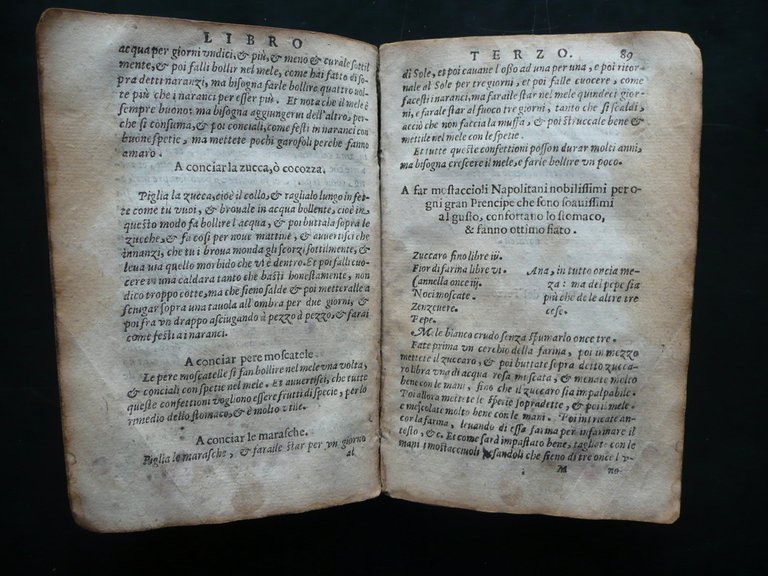 LIBRO
acqua per giorni vndici, & più, & meno & curale sottil
mente, & poi falli bollir nel mele, come hai fatto di so-
pra detti naranzi, ma bisogna farle bollire quattro vol-
te più che i naranci per esser più. Et nota che il mele è
sempre buono: ma bisogna aggiungerui dell'altro, per-
che si consuma, & poi conciali, come festi in naranci con
buone spetie, ma mettete pochi garofoli perche fanno
amaro.
A conciar la zucca, ò cocozza.
Piglia la zucca, cioè il collo, & taglialo lungo in fet-
te come tu vuoi, & brouale in acqua bollente, cioè in
questo modo fa bollire l'acqua, & poi buttala sopra le
zucche, & fa cosi per noue mattine, & auuertisci che
innanzi, che tu i broua monda gli scorzi sottilmente, &
leua uia quello morbido che v'è dentro. Et poi falli cuo-
cere in una caldara tanto che basti honestamente, non
dico troppo cotte, ma che sieno salde & poi metterale a
sciugar sopra una tauola all'ombra per due giorni, &
poi fra vn drappo asciugando à pezzo à pezzo, & farai
come festi a i naranci.
A conciar pere moscatele
Le pere moscatelle si fan bollire nel mele vna volta,
& conciali con spetie nel mele. Et auuertisci, che tutte
queste confettioni vogliono essere frutti di specie, per lo
rimedio dello stomaco, & è molto vtile.
A conciar le marasche.
Piglia le marasche, & faraile star per vn giorno
al
TERZO. 89
di Sole, et poi cauane l'osso ad una per una, e poi ritor-
nale al Sole per tre giorni, et poi falle cuocere, come
facesti i naranci, ma faraile star nel mele quindeci gior-
ni, e faraile star al fuoco tre giorni, tanto che si scaldi,
acciò che non faccia la muffa, & poi struccale bene &
mettile nel mele con le spetie.
Et tutte queste confettioni posson durar molti anni,
ma bisogna crescere il mele, e farle bollire vn poco.
A far mostaccioli Napolitani nobilissimi per o-
gni gran Prencipe che sono soauissimi
al gusto, confortano lo stomaco,
& fanno ottimo fiato.
Zuccaro fino libre iij.
Fior di farina libre vi.
Cannella once iij.
Noci moscate.
Zenzeuere.
Pepe.
Ana, in tutto oncia me-
za: ma del pepe sia
più che de le altre tre
cose.
Mele bianco crudo senza spumarlo once tre.
Fate prima vn cerchio della farina, poi in mezzo
mettete il zuccaro, & poi buttate sopra detto zucca-
ro libra vna di acqua rosa muscata, & menate molto
bene con le mani, fino che il zuccaro sia impalpabile.
Poi allora mettete le specie sopradette, & poi il mele
e mescolate molto bene con le mani. Poi intricate an-
cor la farina, leuando di essa farina per infarinare il
testo, &c. Et come sarà impastato bene, tagliate con le
mani i mostacciuoli pesandoli che sieno di tre once l'v-
M no